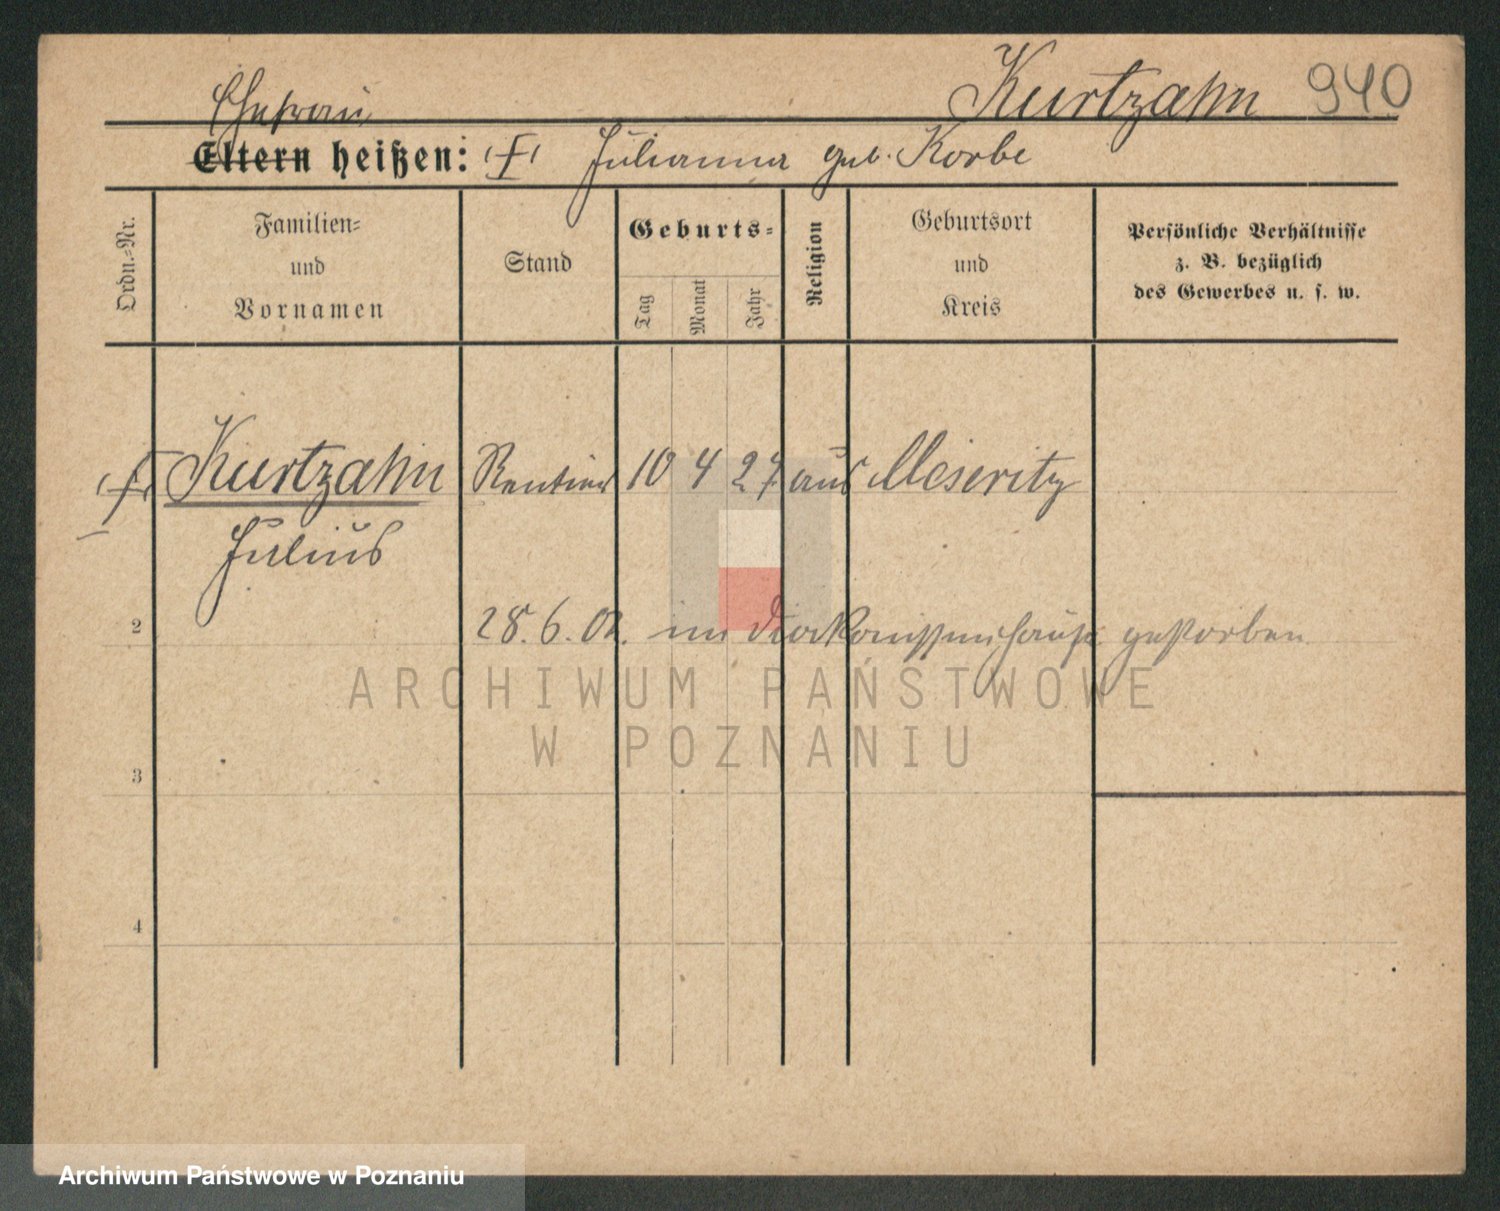 Kurtzahn 940
Ehefrau
Eltern heißen: Julianna geb. Korbe
Ordn.-Nr.
Familien-
und
Vornamen
Stand
Geburts-
Tag
Monat
Jahr
Religion
Geburtsort
und
Kreis
Persönliche Verhältnisse
z. B. bezüglich
des Gewerbes u. s. w.
Kurtzahn Rentier 10 4 27 aus Meseritz
Julius
2
28. 6. 02. im Diakonissenhause gestorben
ARCHIWUM PAŃSTWOWE
W POZNANIU
3
4
Archiwum Państwowe w Poznaniu